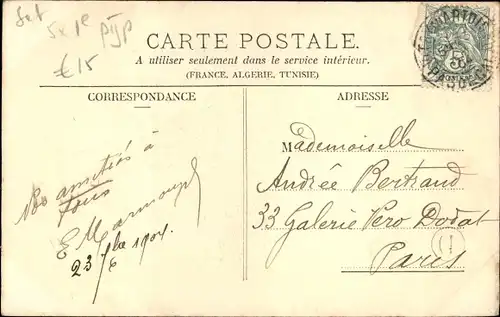 Set
5x 1e
pijp
€15
CARTE POSTALE.
A utiliser seulement dans le service intérieur.
(FRANCE, ALGERIE, TUNISIE)
CORRESPONDANCE
Nos amitiés à
tous
23 1904
ADRESSE
Mademoiselle
Andrée Bertrand
33 Galerie Vero Dodat
Paris